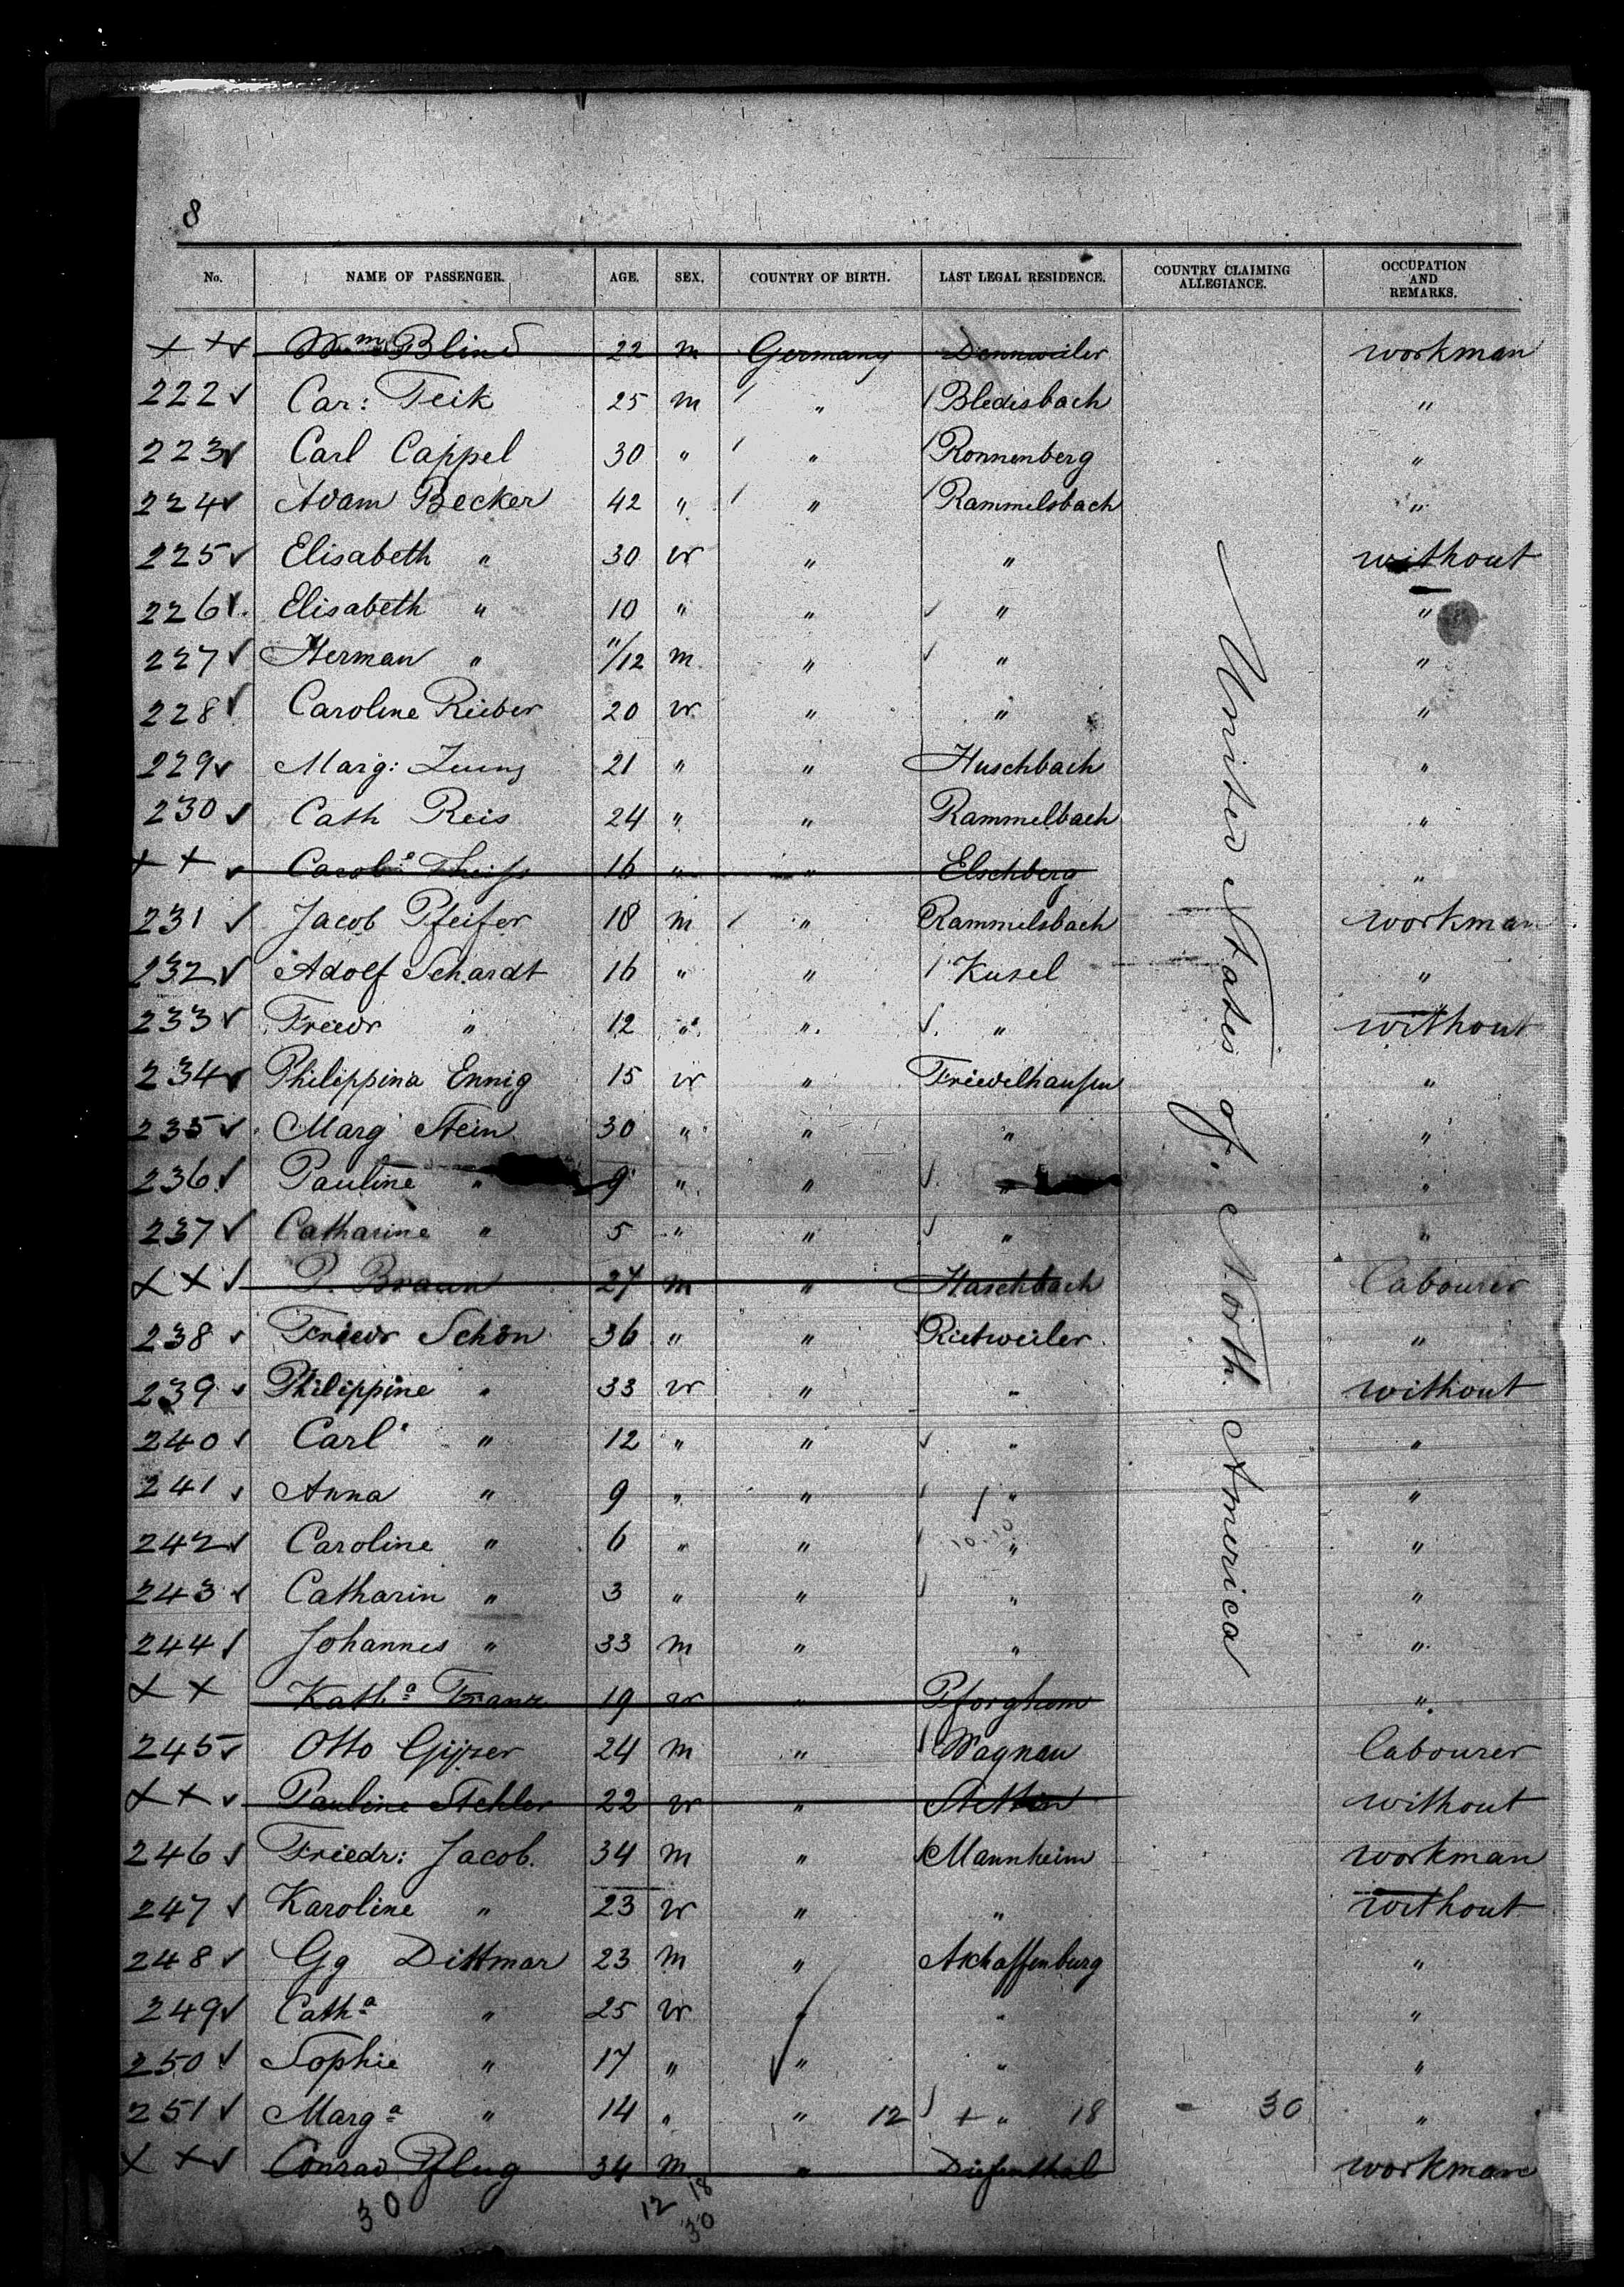 8
No. NAME OF PASSENGER. AGE. SEX. COUNTRY OF BIRTH. LAST LEGAL RESIDENCE. COUNTRY CLAIMING ALLEGIANCE. OCCUPATION AND REMARKS.
× × ✓ Wm Blind 22 m Germany Dennweiler workman
222 ✓ Car: Teik 25 m " Bledisbach "
223 ✓ Carl Cappel 30 " " Ronnenberg "
224 ✓ Adam Becker 42 " " Rammelsbach "
225 ✓ Elisabeth " 30 w " " without
226 ✓ Elisabeth " 10 " " ✓ " "
227 ✓ Herman " 11/12 m " ✓ " "
228 ✓ Caroline Rieber 20 w " " "
229 ✓ Marg: 21 " " Huschbach "
230 ✓ Cath Reis 24 " " Rammelbach "
× × ✓ Carola Theiss 16 " " Elschberg "
231 ✓ Jacob Pfeifer 18 m " Rammelsbach workman
232 ✓ Adolf Schardt 16 " " Kusel "
233 ✓ Friedr " 12 " " ✓ " without
234 ✓ Philippina Ennig 15 w " Friedelhausen "
235 ✓ Marg Stein 30 " " " "
236 ✓ Pauline " 9 " " ✓ " "
237 ✓ Catharine " 5 " " ✓ " "
× × ✓ P. Braun 27 m " Haschbach Labourer
238 ✓ Friedr Schön 36 " " Rietweiler "
239 ✓ Philippine " 33 w " " without
240 ✓ Carl " 12 " " ✓ " "
241 ✓ Anna " 9 " " ✓ " "
242 ✓ Caroline " 6 " " ✓ " "
243 ✓ Catharin " 3 " " ✓ " "
244 ✓ Johannes " 33 m " " "
× × Katha Franz 19 w " Pforghem "
245 ✓ Otto Gijzer 24 m " Wagnau Labourer
× × ✓ Pauline Stehler 22 w " Stettin without
246 ✓ Friedr: Jacob. 34 m " Mannheim workman
247 ✓ Karoline " 23 w " " without
248 ✓ Gg Dittmar 23 m " Aschaffenburg "
249 ✓ Catha " 25 w " " "
250 ✓ Sophie " 17 " " " "
251 ✓ Marga " 14 " " 12 ✓ + " 18 - 30 "
× × ✓ Conrad Pflug 34 m " Diefenthal workman
30 12 18
30
United States of North America